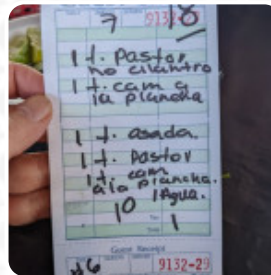 7 18
1 t. Pastor
no cilantro
1 t. cam a
la plancha
1 t. asada.
1 t. Pastor
1 t. cam
a la plancha.
10 1 Agua.
1
Guest Receipt
#6 9132-29